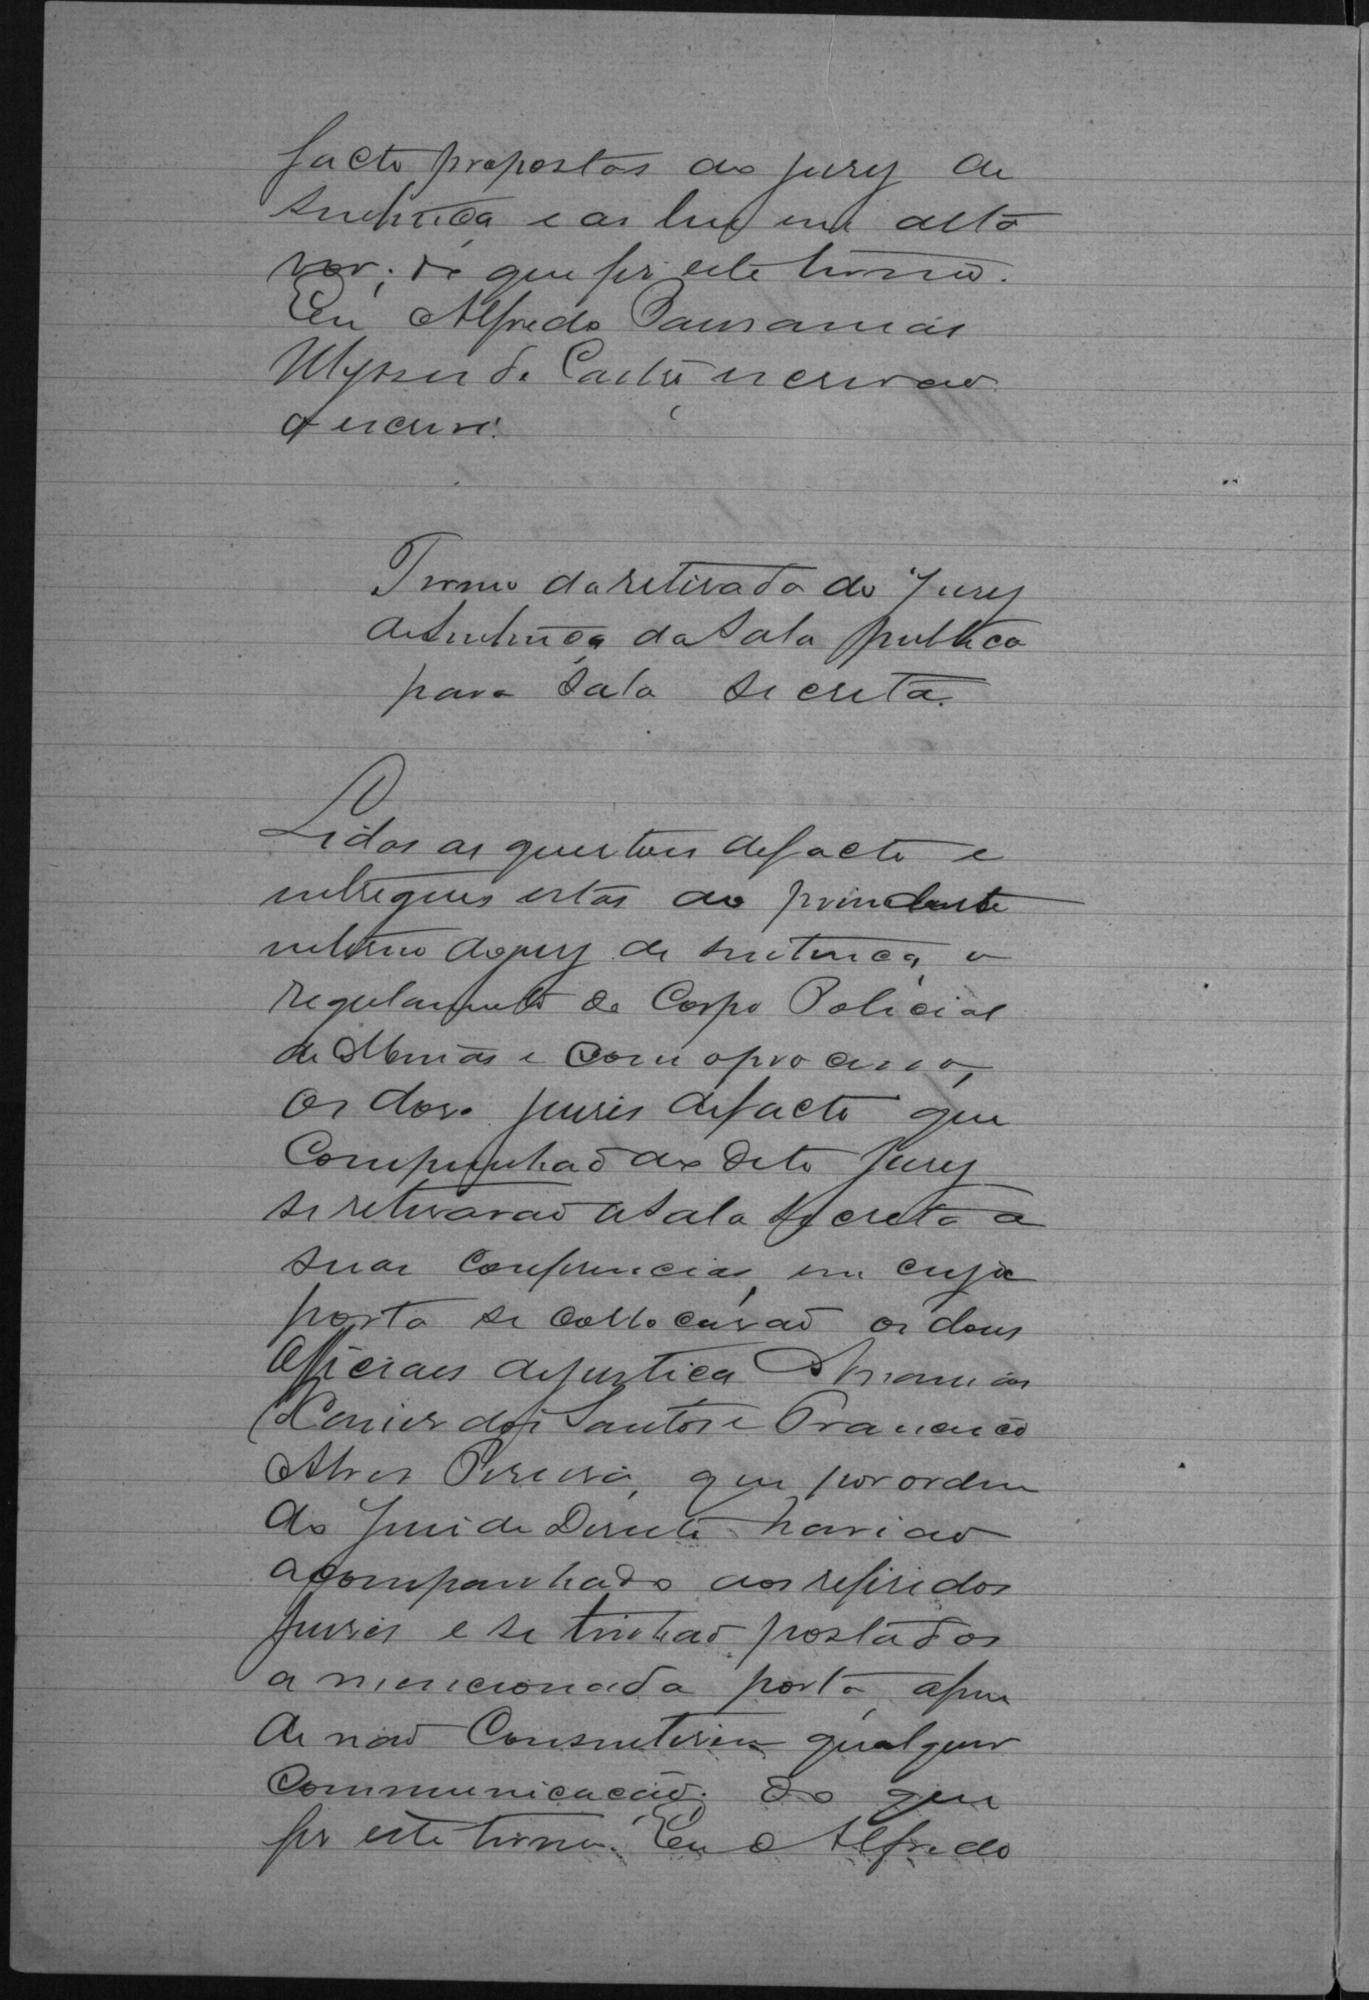 facto propostas ao jury de
sentença e as li em alta
voz; do que fiz este termo.
Eu Alfredo Pausanias
Ulysses de Castro escrivão
o escrevi.
Termo da retirada do Jury
de Sentença da Sala publica
para Sala secreta.
Lidos as questões de facto e
entregues estas ao presidente
interino do jury de sentença, o
regulamento do Corpo Policial
de Minas e com o processo,
os doze juises de facto que
Compunhão ao dito Jury
se retirarão a Sala secreta a
suas conferencias, em cuja
porta se collocarão os dous
Officiaes de justiça Ananias
Xavier dos Santos e Francisco
Alves Pereira, que por ordem
do Juis de Direito havião
acompanhado aos referidos
Juises e se tinhão postados
a mencionada porta, afim
de não Consentirem qualquer
Communicação. Do que
fiz este termo. Eu Alfredo